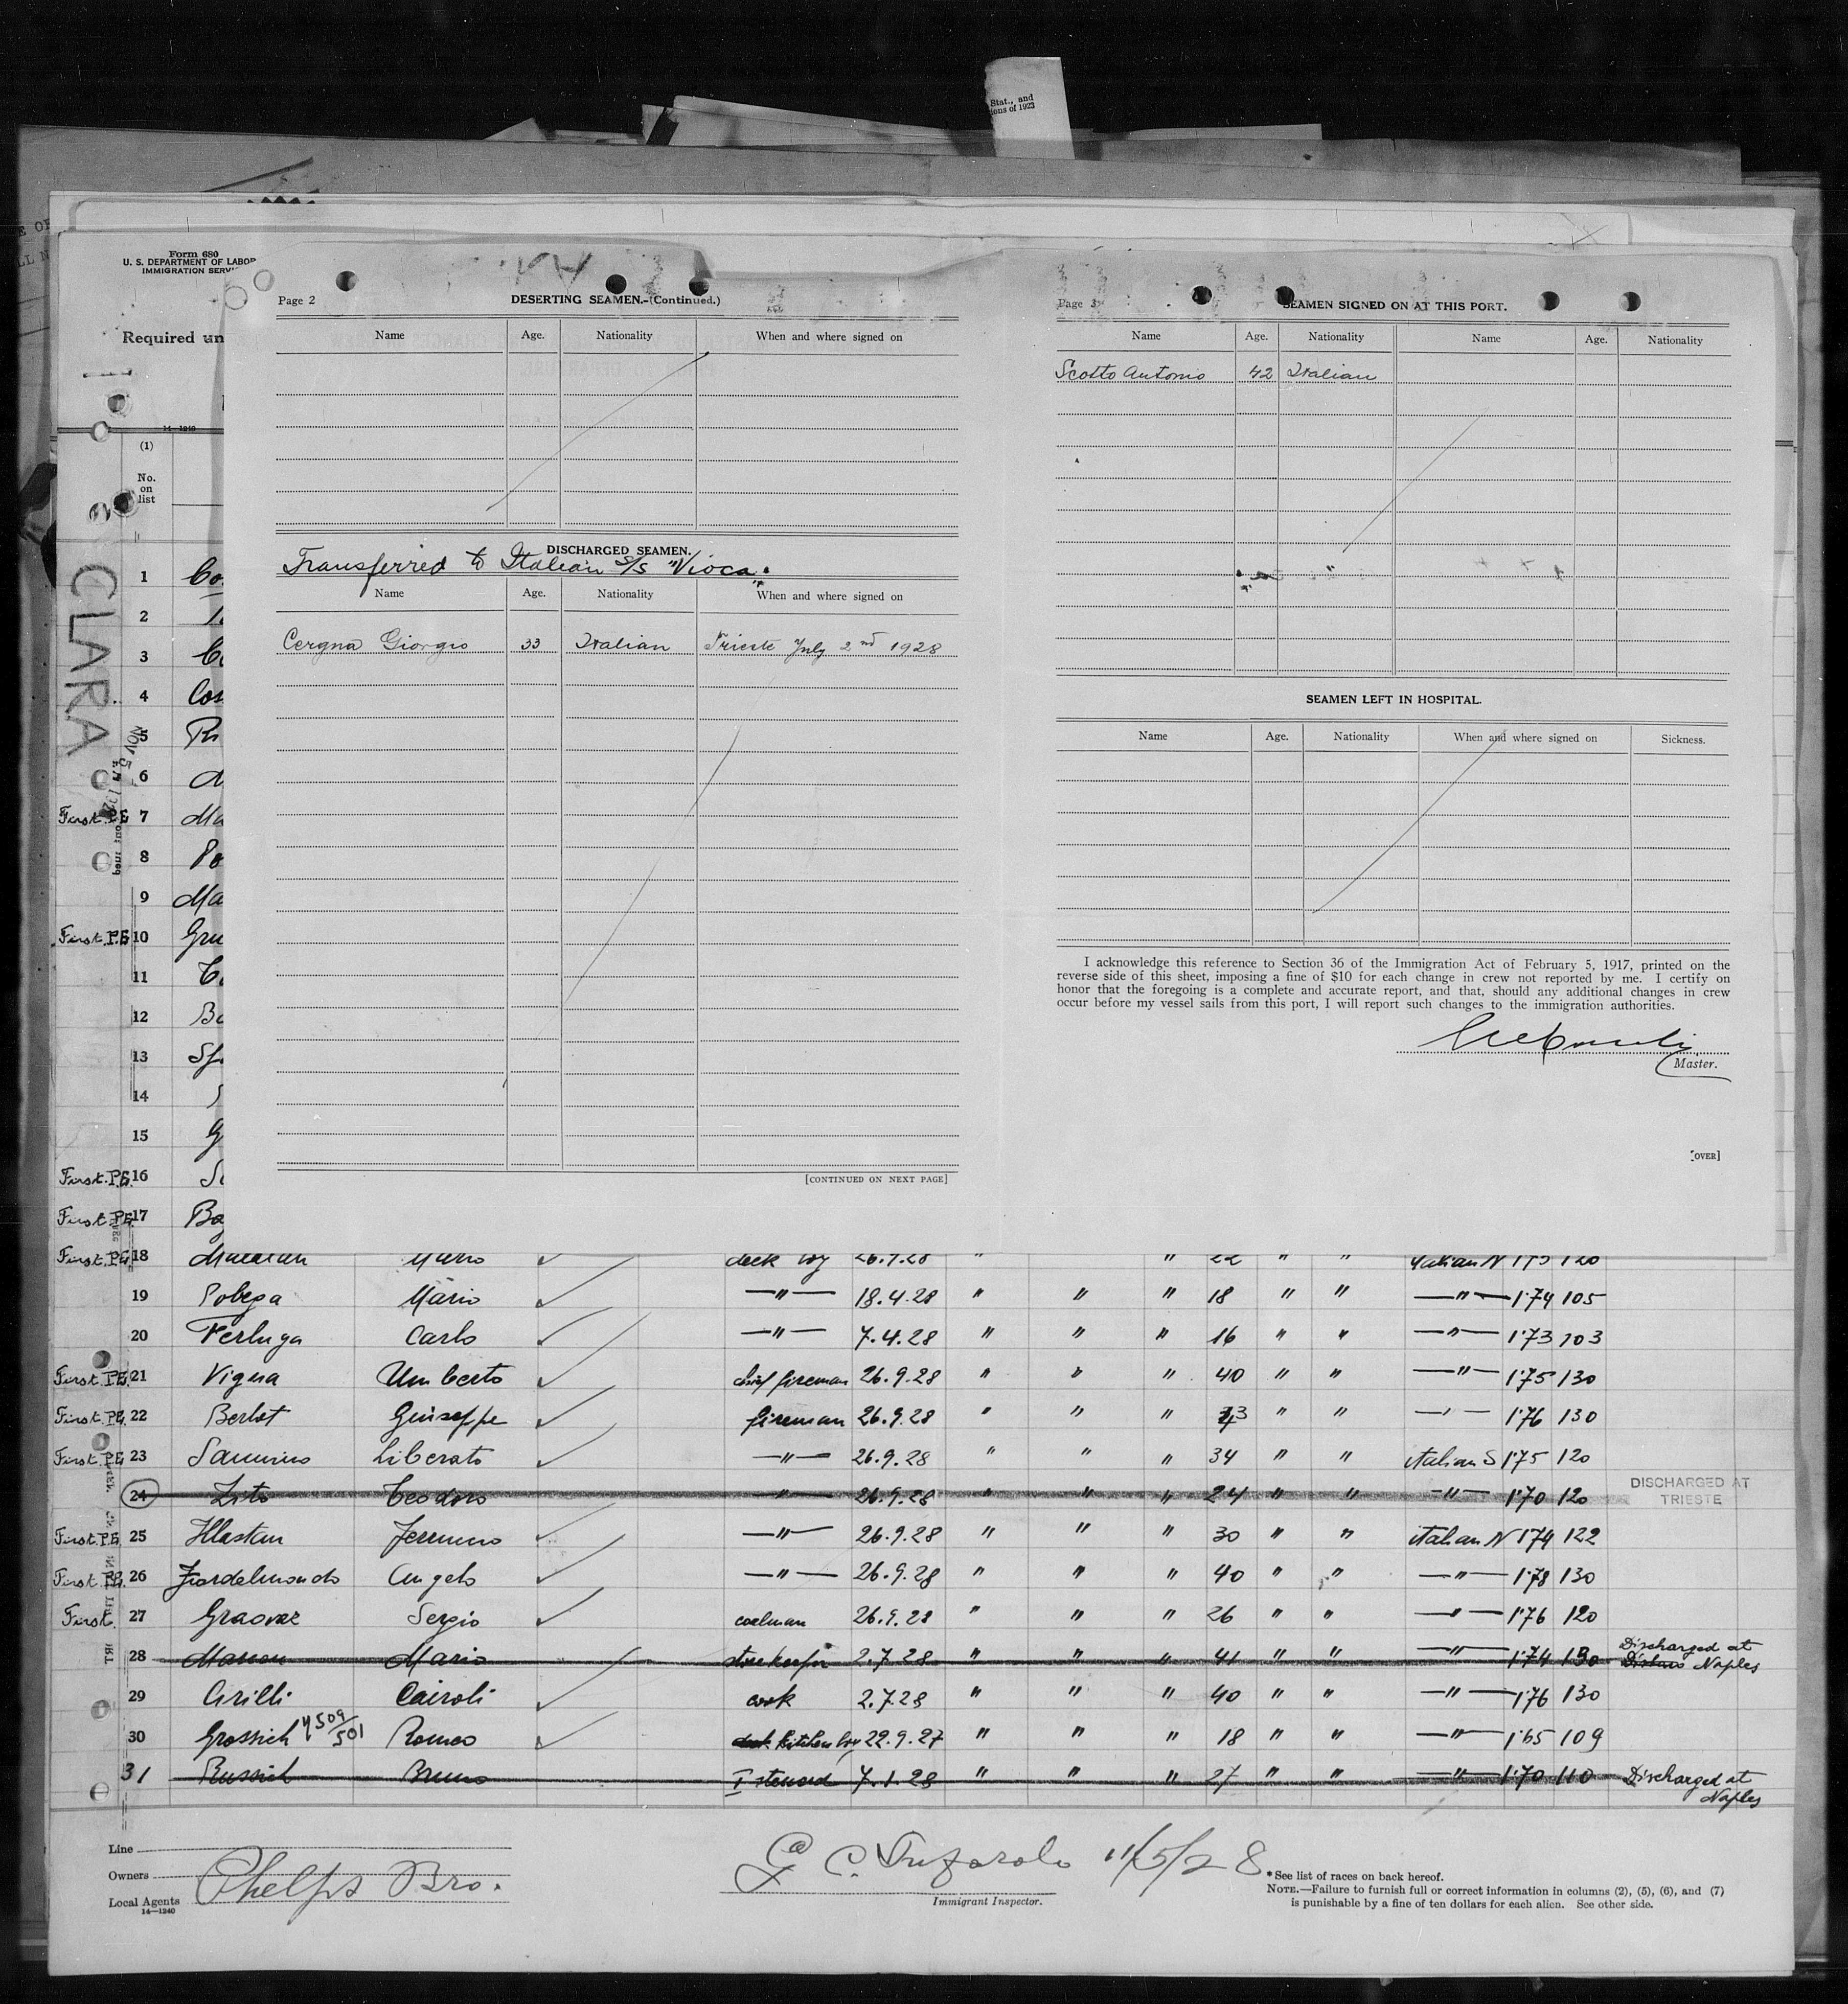 Stat., and
ions of 1923
Form 680
U. S. DEPARTMENT OF LABOR
IMMIGRATION SERVI
Required un
14—1240
(1)
No.
on
list
CLARA
NOV 5
Page 2
DESERTING SEAMEN.—(Continued.)
Name Age. Nationality When and where signed on
DISCHARGED SEAMEN.
Transferred to Italian S/S "Vioca".
Name Age. Nationality When and where signed on
Cergna Giorgio 33 Italian Trieste July 2nd 1928
[CONTINUED ON NEXT PAGE]
Page 3
SEAMEN SIGNED ON AT THIS PORT.
Name Age. Nationality Name Age. Nationality
Scotto Antonio 42 Italian
SEAMEN LEFT IN HOSPITAL.
Name Age. Nationality When and where signed on Sickness.
I acknowledge this reference to Section 36 of the Immigration Act of February 5, 1917, printed on the
reverse side of this sheet, imposing a fine of $10 for each change in crew not reported by me. I certify on
honor that the foregoing is a complete and accurate report, and that, should any additional changes in crew
occur before my vessel sails from this port, I will report such changes to the immigration authorities.
Master.
[OVER]
1 Co
2
3 Co
4 Cos
5
6
First. P.E. 7 Ma
8 Po
9 Ma
First. P.E. 10 Gru
11
12 Bo
13
14
15 G
First. P.E. 16
First. P.E. 17
First. P.E. 18 Mario deck boy 26.9.28 " " 22 " " italian N 1'75 120
19 Pobega Mario —"— 18.4.28 " " " 18 " " —"— 1'74 105
20 Ferluga Carlo —"— 7.4.28 " " " 16 " " —"— 1'73 103
First. P.E. 21 Vigna Umberto chief fireman 26.9.28 " " " 40 " " —"— 1'75 130
First. P.E. 22 Berlot Giuseppe fireman 26.9.28 " " " 43 " " —"— 1'76 130
First. P.E. 23 Sannino Liberato —"— 26.9.28 " " " 34 " " italian S 1'75 120
24 Zito Teodoro —"— 26.9.28 " " " 24 " " —"— 1'70 120 DISCHARGED AT
TRIESTE
First. P.E. 25 —"— 26.9.28 " " " 30 " " italian N 1'74 122
First. P.E. 26 Fiordelmondo Angelo —"— 26.9.28 " " " 40 " " —"— 1'78 130
First. 27 Graovaz Sergio coalman 26.9.28 " " " 26 " " —"— 1'76 120
28 Mario storekeeper 2.7.28 " " " 41 " " —"— 1'74 130 Discharged at
Naples
29 Grilli Cairoli cook 2.7.28 " " " 40 " " —"— 1'76 130
30 Grossich 509/501 Romeo kitchen boy 22.9.27 " " " 18 " " —"— 1'65 109
31 Russich Bruno I steward 7.1.28 " " " 27 " " —"— 1'70 110 Discharged at
Naples
Line
Owners
Local Agents Phelps Bro.
14—1240
11/5/28
Immigrant Inspector.
*See list of races on back hereof.
NOTE.—Failure to furnish full or correct information in columns (2), (5), (6), and (7)
is punishable by a fine of ten dollars for each alien. See other side.